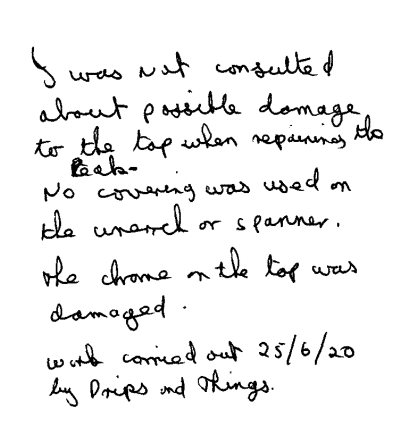 I was not consulted
about possible damage
to the tap when repairing the
leak-
No covering was used on
the wrench or spanner.
The chrome on the tap was
damaged.
work carried out 25/6/20
by Drips and Things.